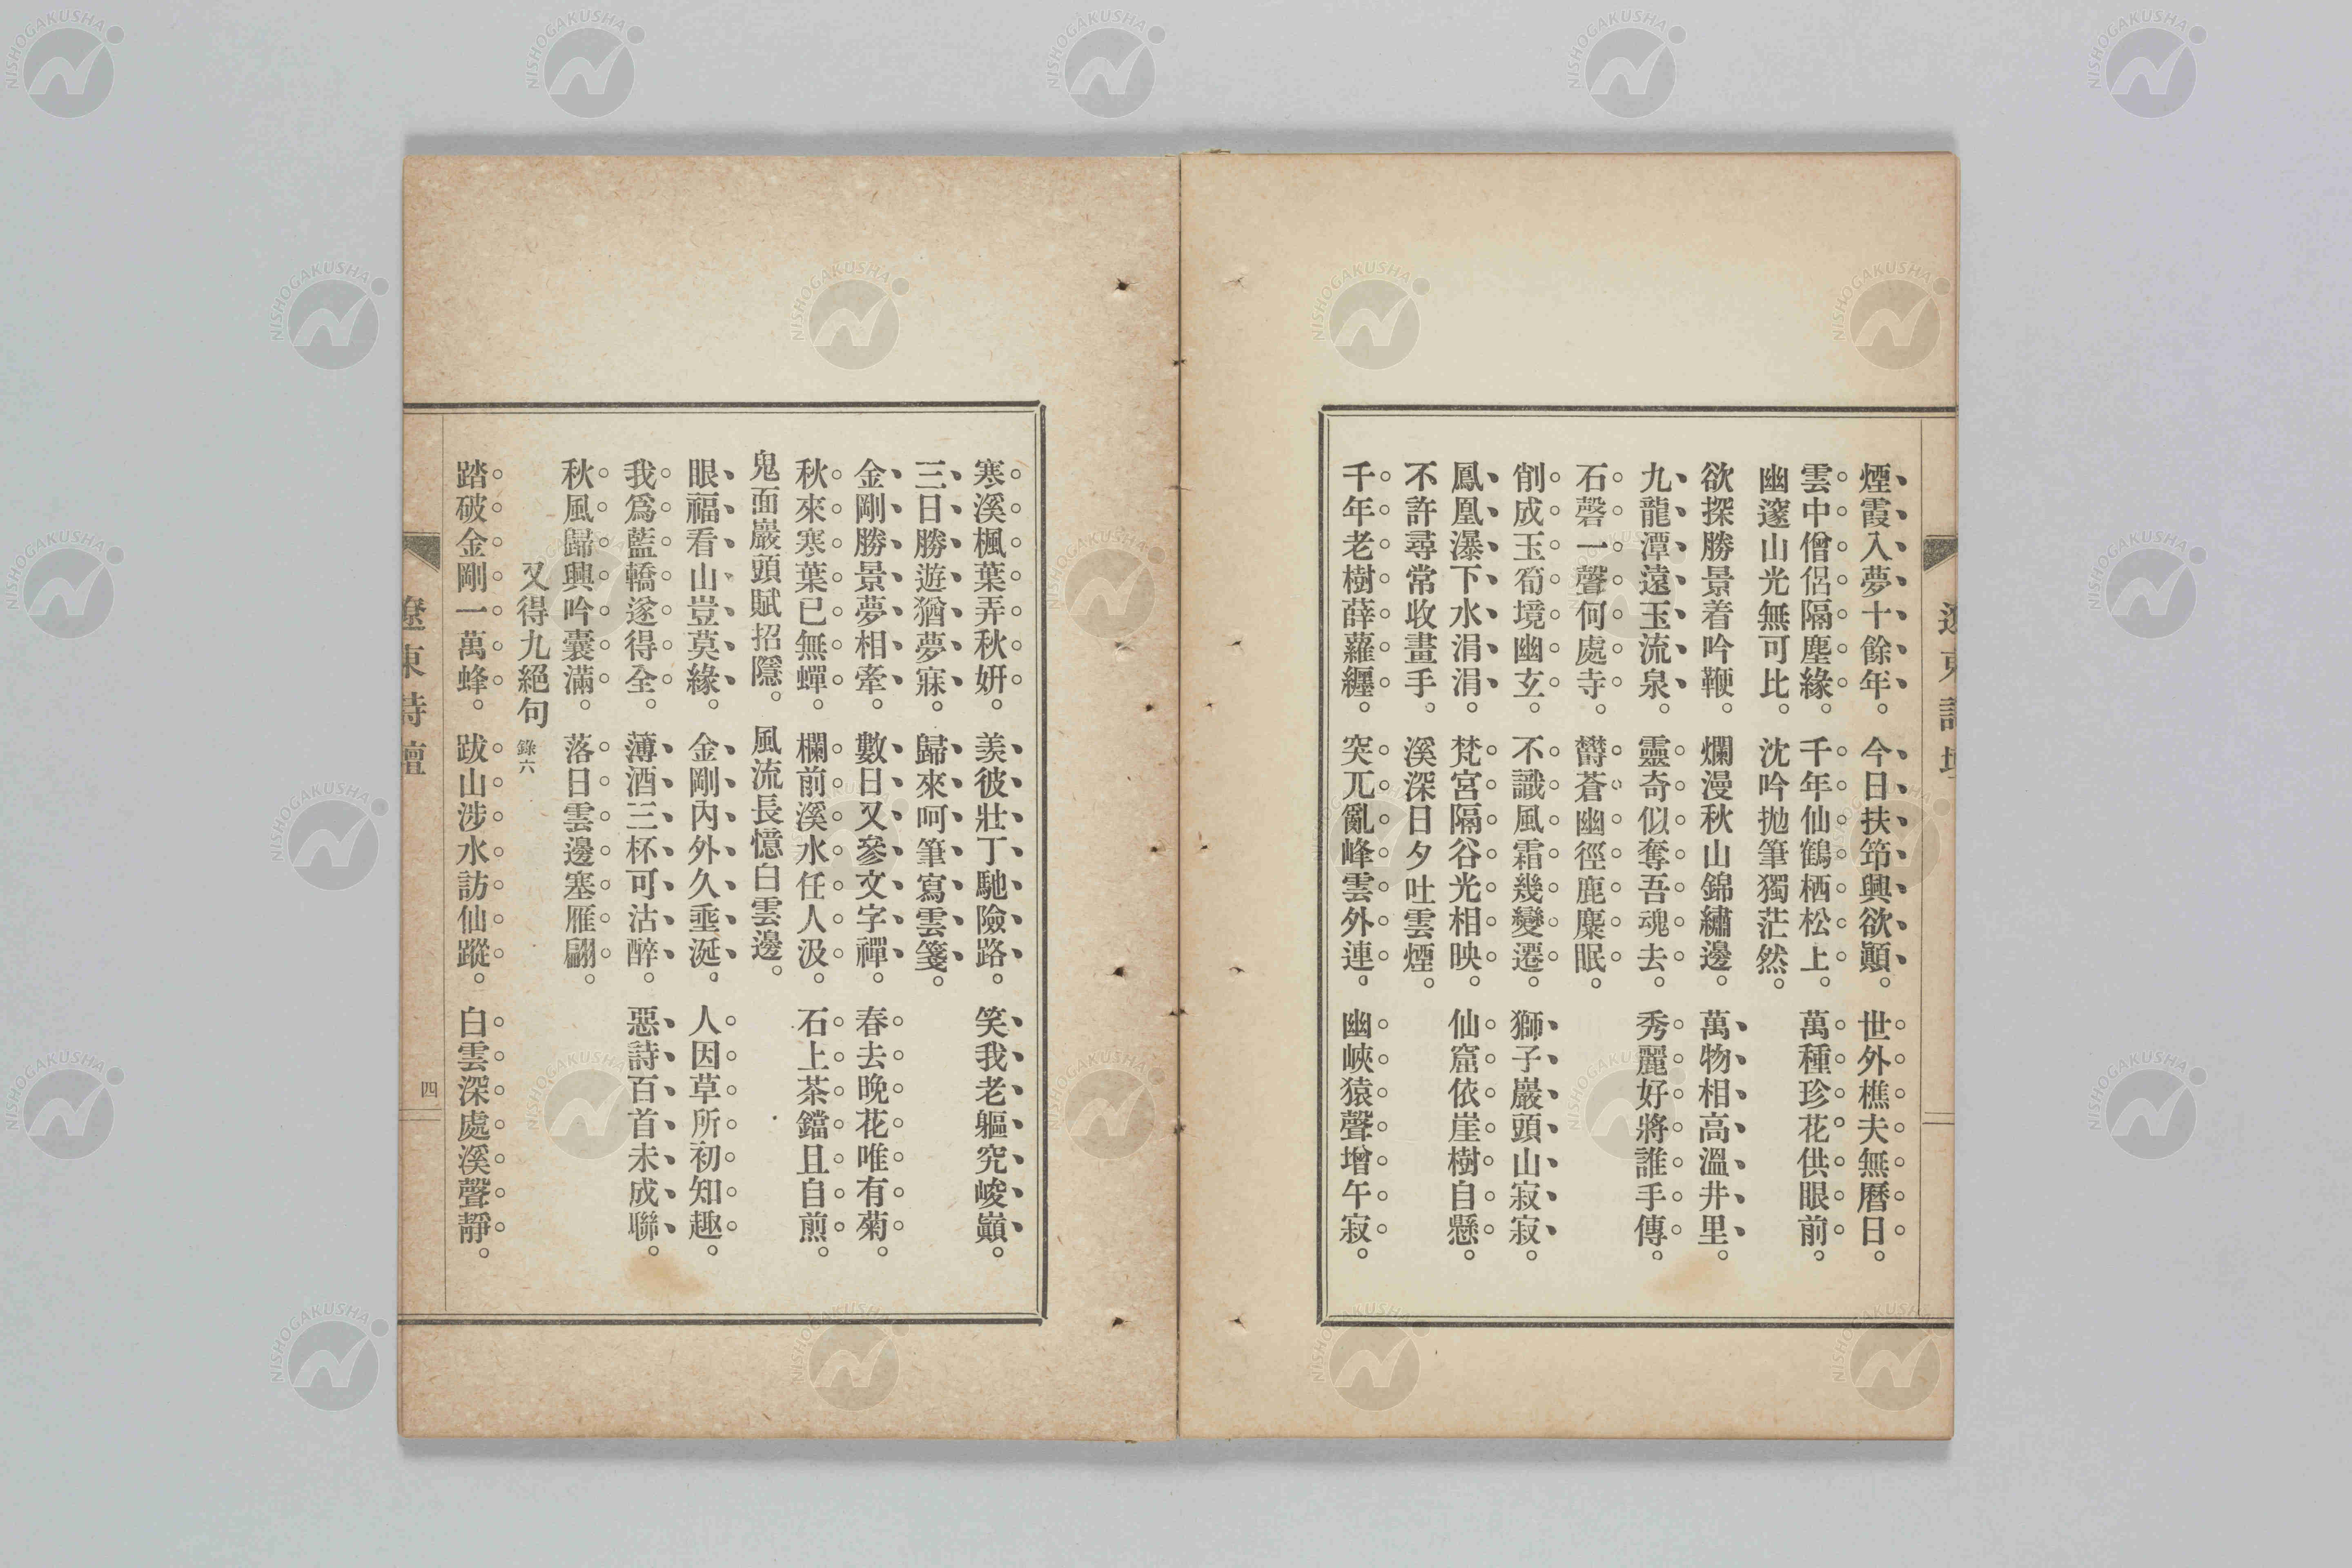 煙霞入夢十餘年。今日扶笻興欲顚。世外樵夫無曆日。
雲中僧侶隔塵緣。千年仙鶴栖松上。萬種珍花供眼前。
幽邃山光無可比。沈吟抛筆獨茫然。
欲探勝景着吟鞭。爛漫秋山錦繡邊。萬物相高溫井里。
九龍潭遠玉流泉。靈奇似奪吾魂去。秀麗好將誰手傳。
石磬一聲何處寺。欝蒼幽徑鹿麋眠。
削成玉筍境幽玄。不識風霜幾變遷。獅子巖頭山寂寂。
鳳凰瀑下水涓涓。梵宮隔谷光相映。仙窟依崖樹自懸。
不許尋常收畫手。溪深日夕吐雲煙。
千年老樹薜蘿纒。突兀亂峰雲外連。幽峽猿聲增午寂。
寒溪楓葉弄秋姸。羨彼壯丁馳險路。笑我老軀究峻巓。
三日勝遊猶夢寐。歸來呵筆寫雲箋。
金剛勝景夢相牽。數日又參文字禪。春去晚花唯有菊。
秋來寒葉已無蟬。欄前溪水任人汲。石上茶鐺且自煎。
鬼面巖頭賦招隱。風流長憶白雲邊。
眼福看山豈莫緣。金剛內外久垂涎。人因草所初知趣。
我爲藍轎遂得全。薄酒三杯可沽醉。惡詩百首未成聯。
秋風歸興吟囊滿。落日雲邊塞雁翩。
又得九絕句 錄六
踏破金剛一萬峰。跋山涉水訪仙蹤。白雲深處溪聲靜。
遼東詩壇
四